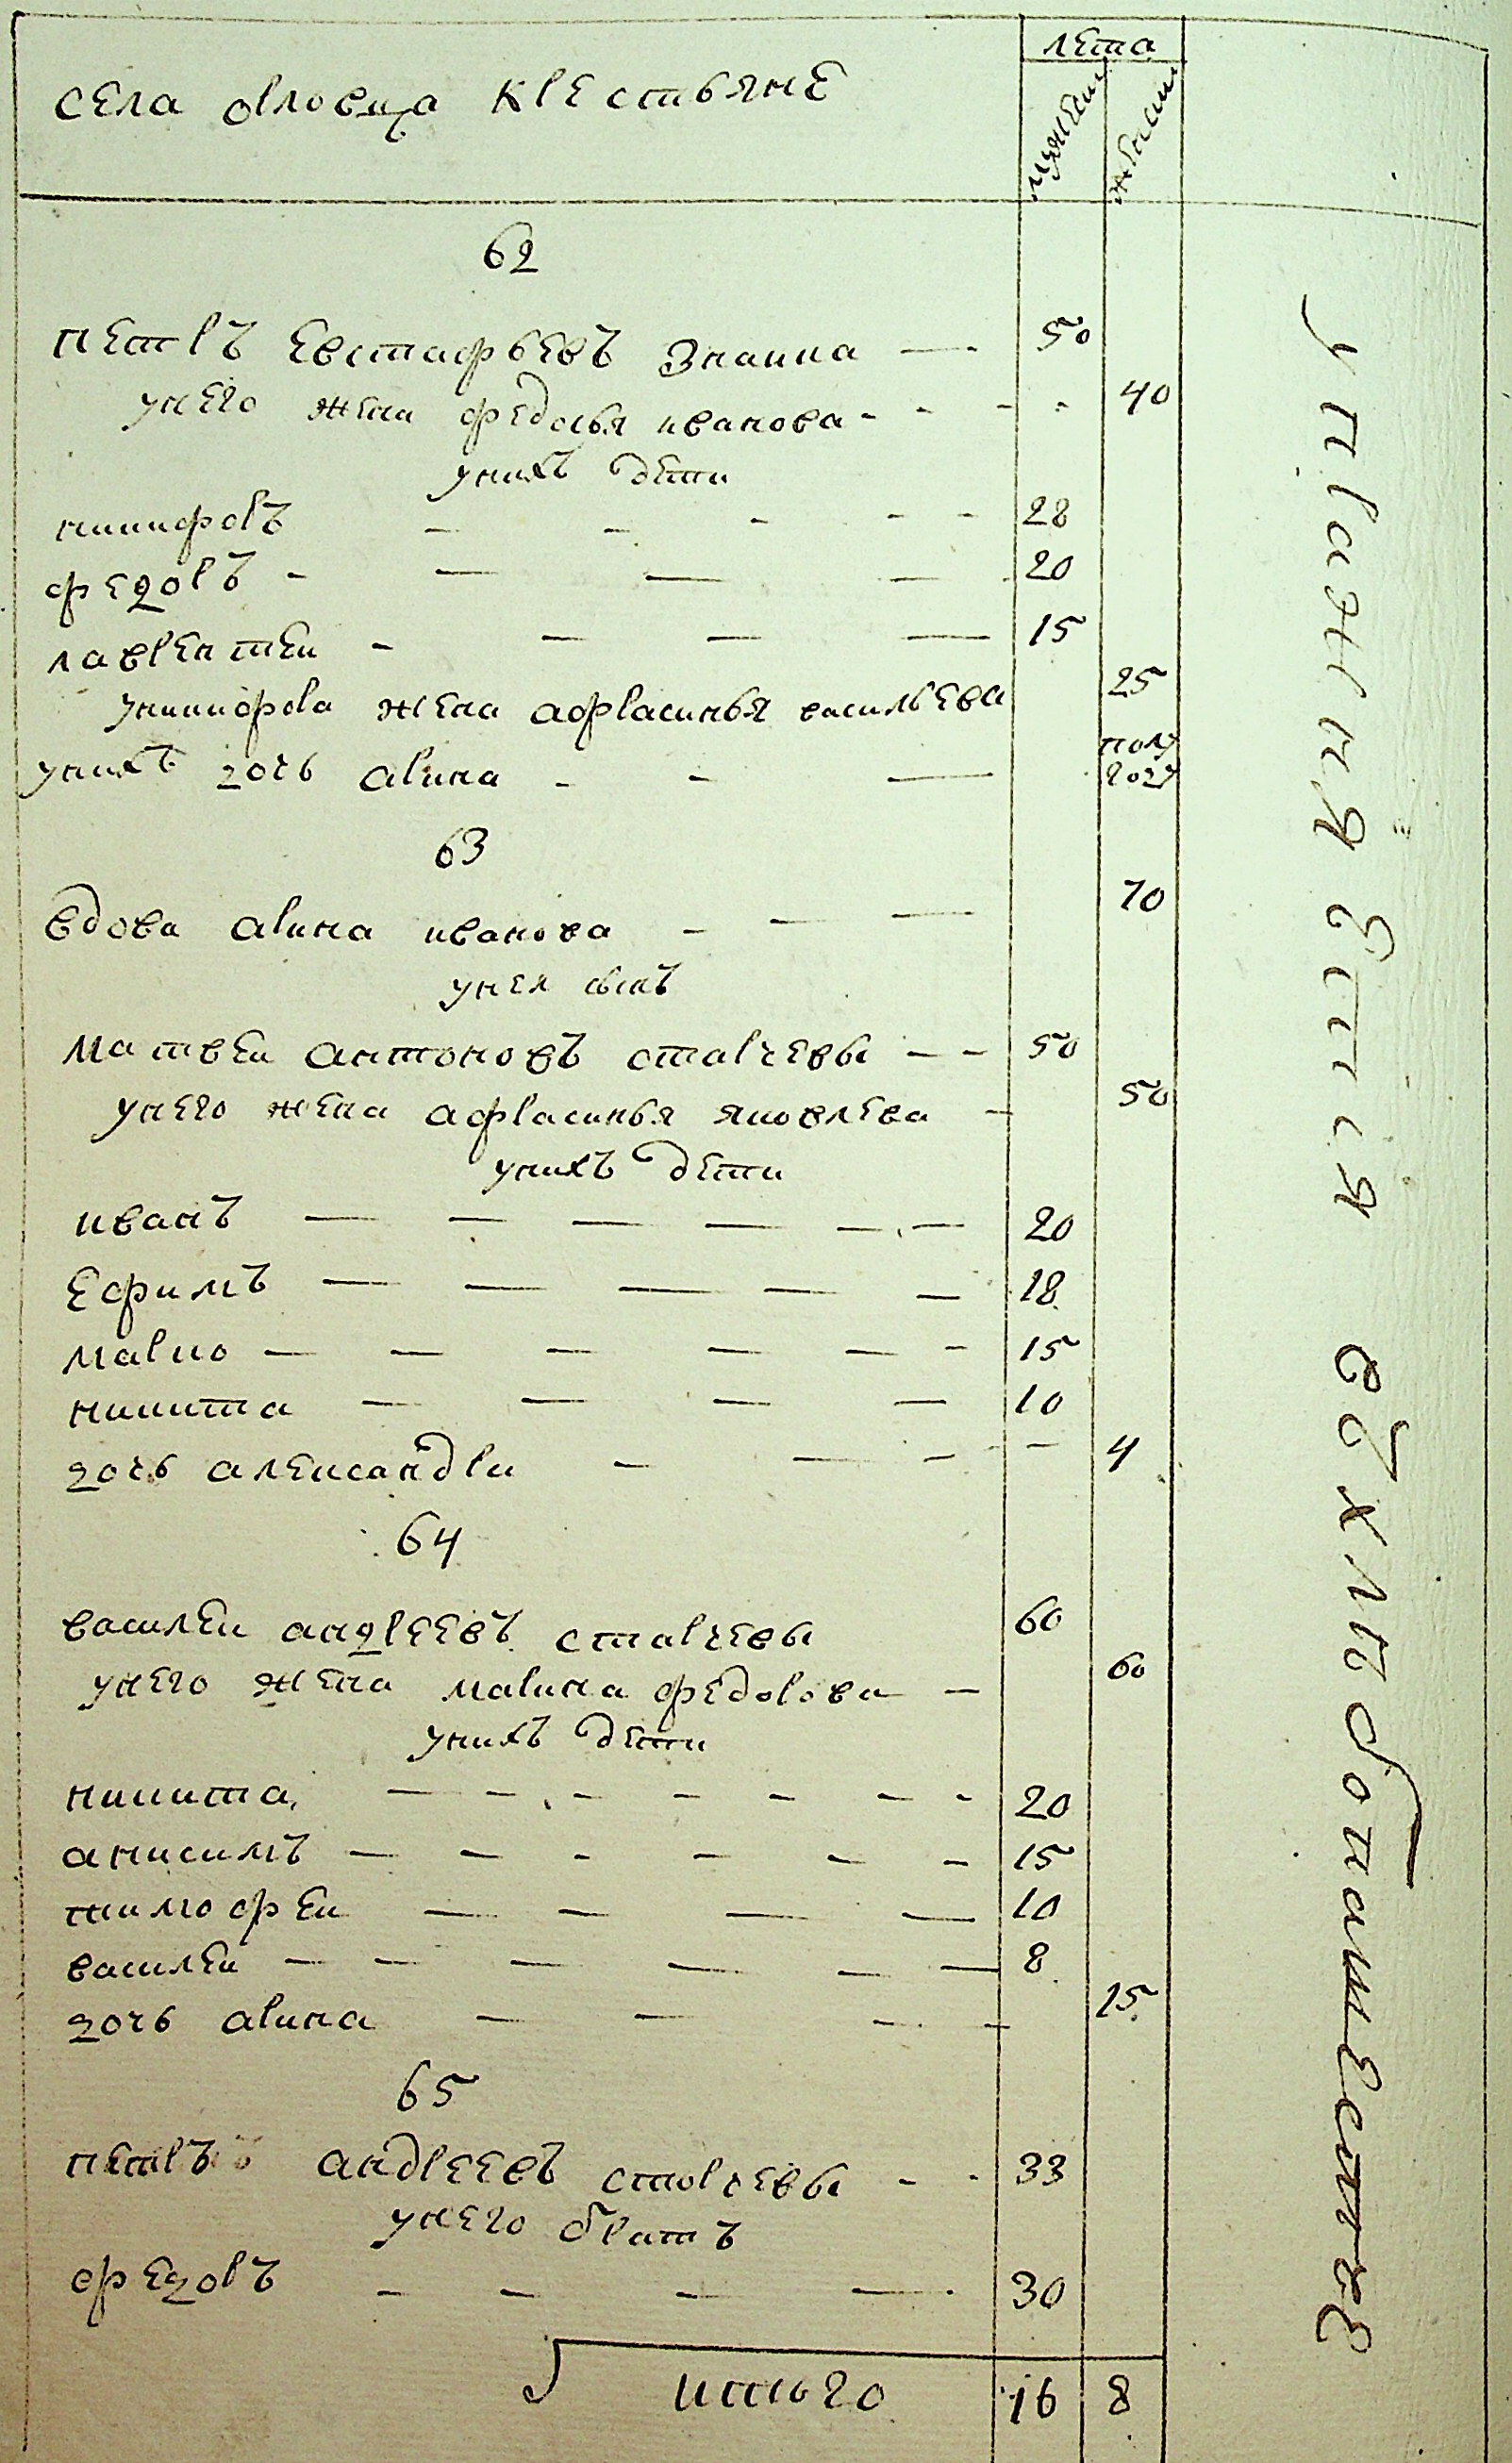 села орловца крестьяне
лета
мужеск
женск
62
петръ евстафьевъ знаика 50
у него жена федосья иванова 40
у нихъ дети
никифоръ 28
федоръ 20
лаврентеи 15
у никифора жена афрасинья васильева 25
у нихъ дочь арина полу году
63
вдова арина иванова 70
у нея сынъ
матвеи антоновъ старчевы 50
у него жена афрасинья яковлева 50
у нихъ дети
иванъ 20
ефимъ 18
марко 15
никита 10
дочь александра 4
64
василеи андреевъ старчевы 60
у него жена марина федорова 60
у нихъ дети
никита 20
анисимъ 15
тимофеи 10
василеи 8
дочь арина 15
65
петръ андреевъ старчевы 33
у него братъ
федоръ 30
итого 16 8
упражняется в хлебопашестве